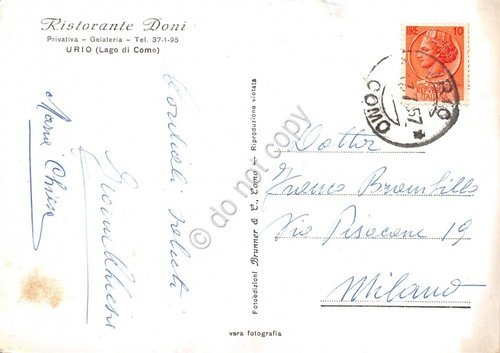 Ristorante Doni
Privativa - Gelateria - Tel. 37-1-95
URIO (Lago di Como)
Cordiali saluti
Maria Chiesa
Fotoedizioni Brunner & C., Como - Riproduzione vietata
do not copy
LIRE 10
COMO
57
Dottor
Franco Brambilla
Via Pisacane 19
Milano
vera fotografia